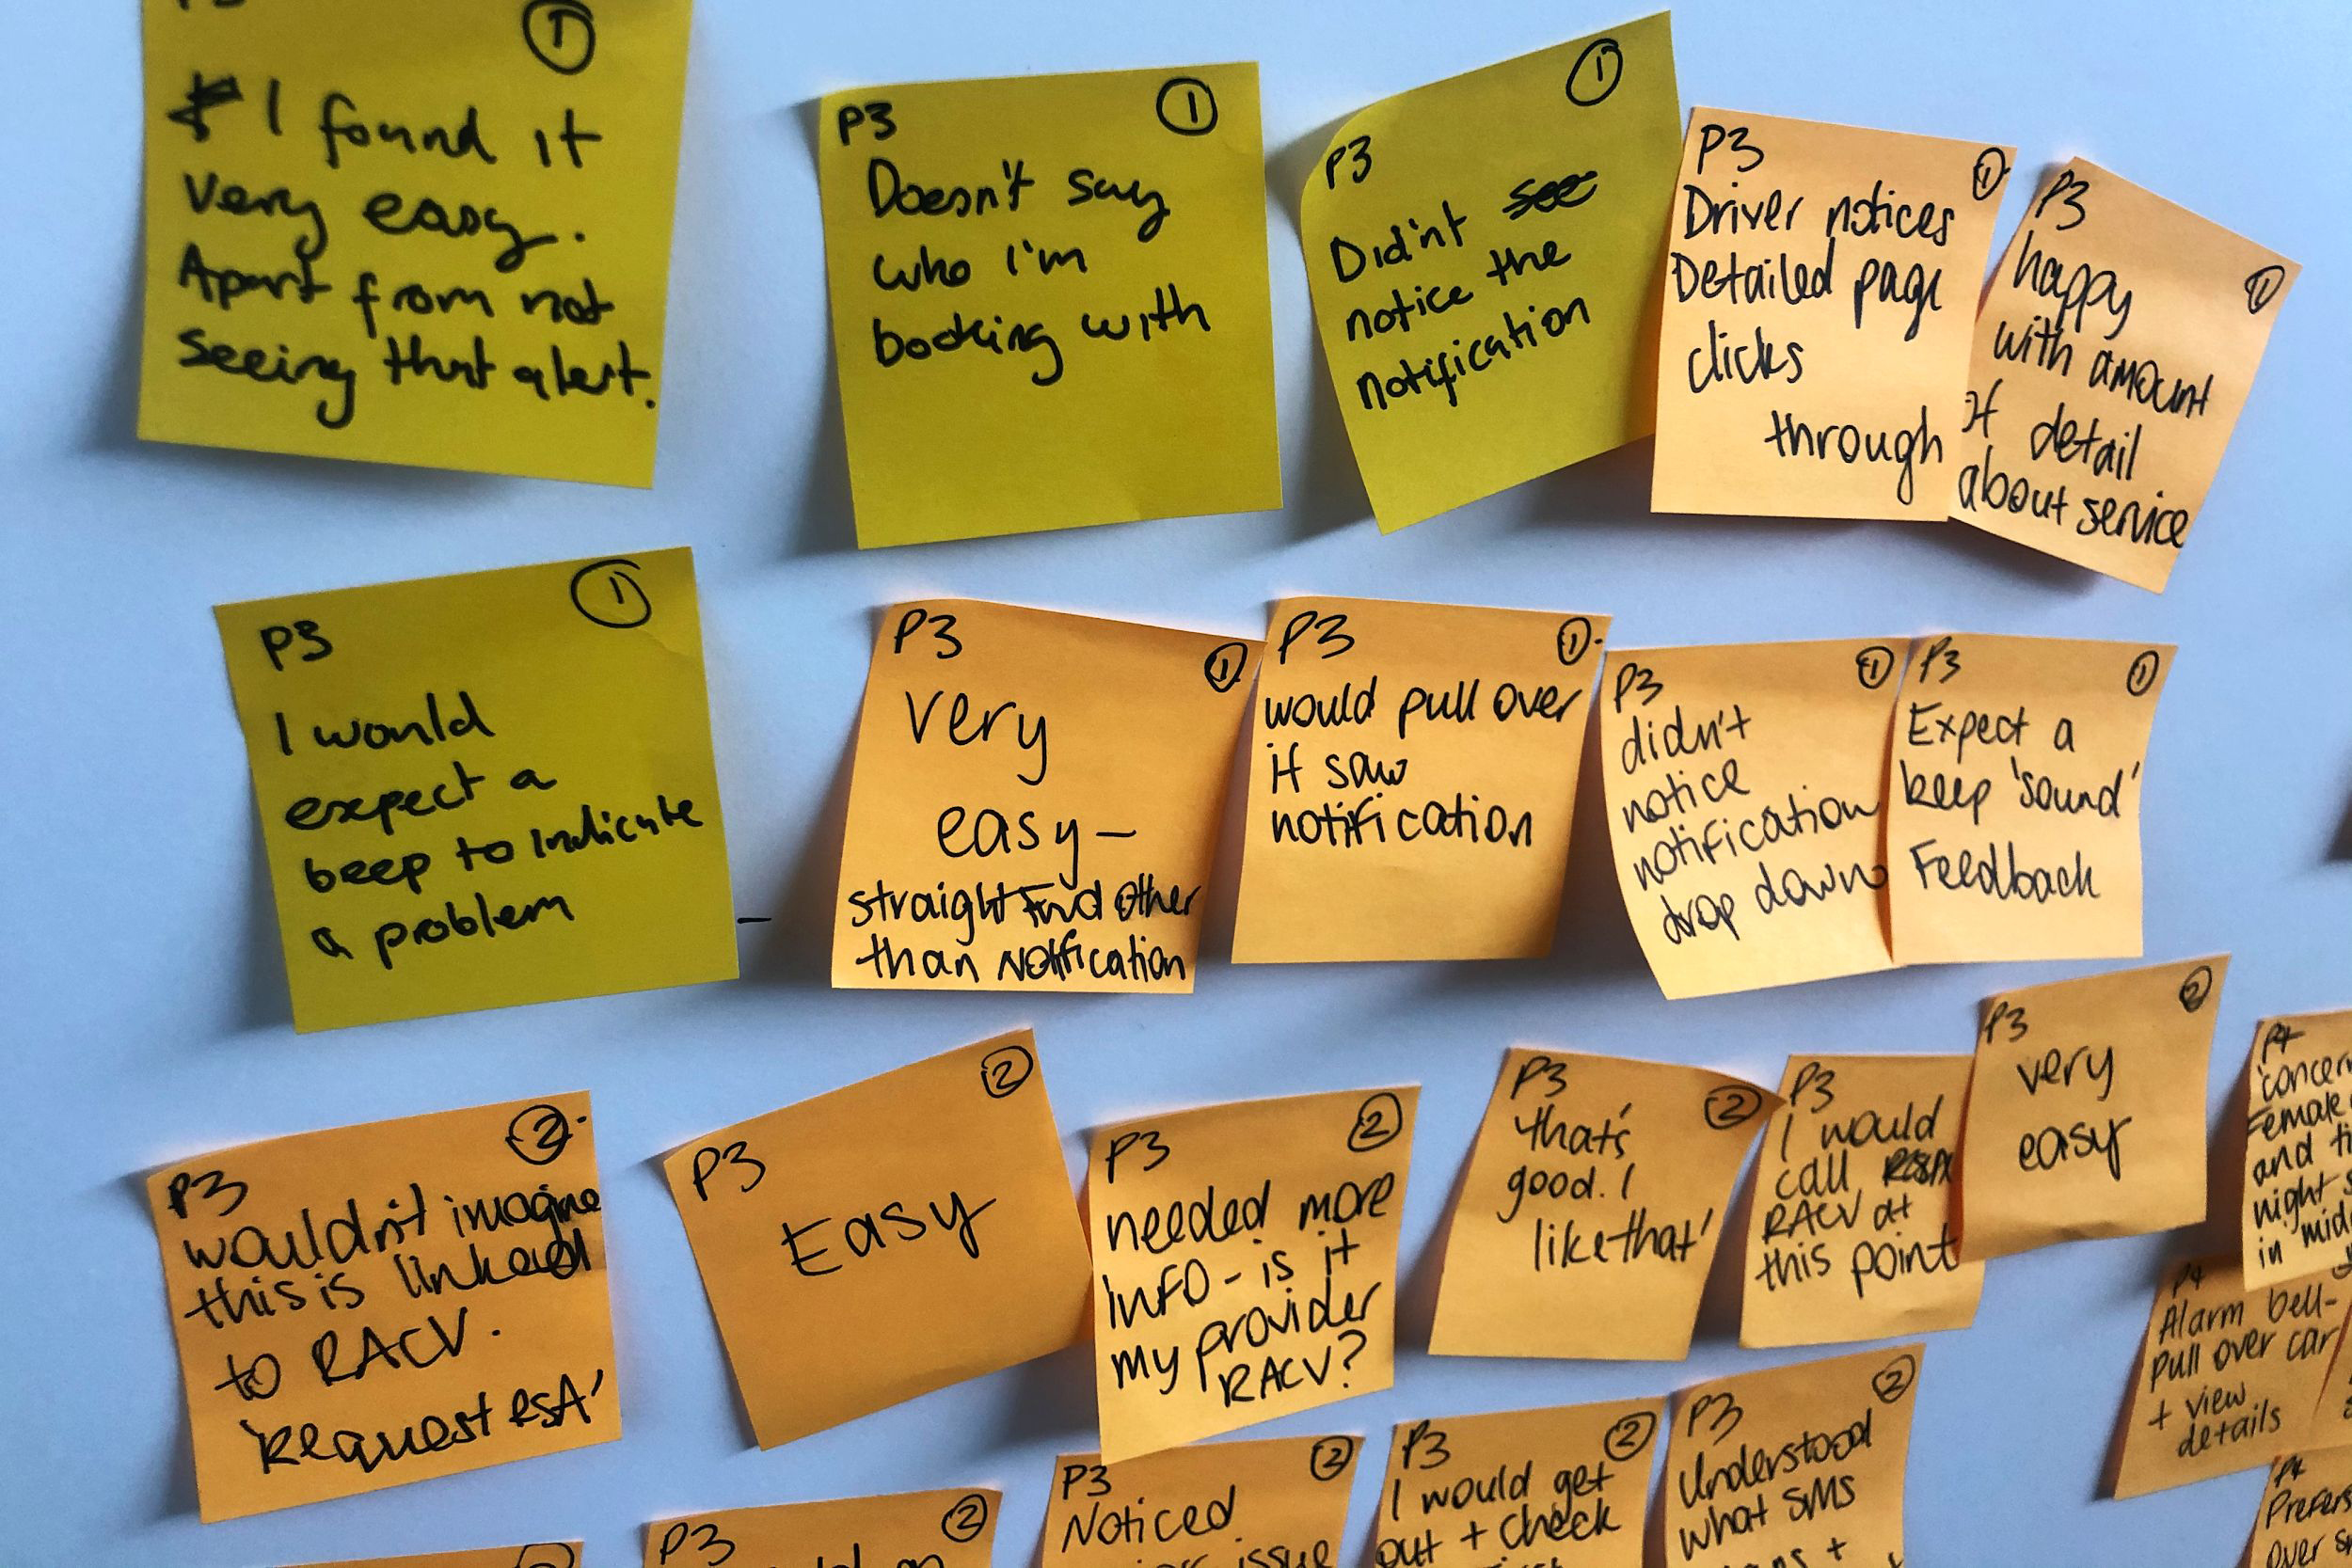 P3
①
I found it
very easy.
Apart from not
seeing that alert.
P3
①
Doesn't say
who I'm
booking with
P3
①
Did'nt see
notice the
notification
P3
①
Driver notices
Detailed page
clicks
through
P3
①
happy
with amount
of detail
about service
P3
①
I would
expect a
beep to indicate
a problem
P3
①
very
easy –
straight fwd other
than notification
P3
①
would pull over
if saw
notification
P3
①
didn't
notice
notification
drop down
P3
①
Expect a
beep 'sound'
Feedback
P3
②
wouldn't imagine
this is linked
to RACV.
'Request RSA'
P3
②
Easy
P3
②
needed more
INFO - is it
my provider
RACV?
P3
②
that's
good. I
like that'
P3
I would
call RSA
RACV at
this point
P3
②
very
easy
P4
Female
and
night
in
P4
Alarm bell-
pull over car
+ view
details
P3
②
P3
②
Noticed
issue
P3
②
I would get
out + check
P3
②
Understood
what SMS
+
P4
over